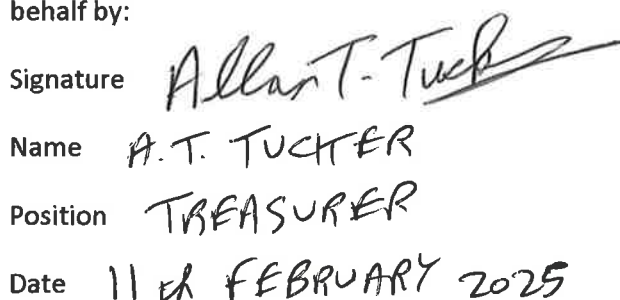 behalf by:
Signature Allan T. Tucker
Name A.T. TUCKER
Position TREASURER
Date 11th FEBRUARY 2025